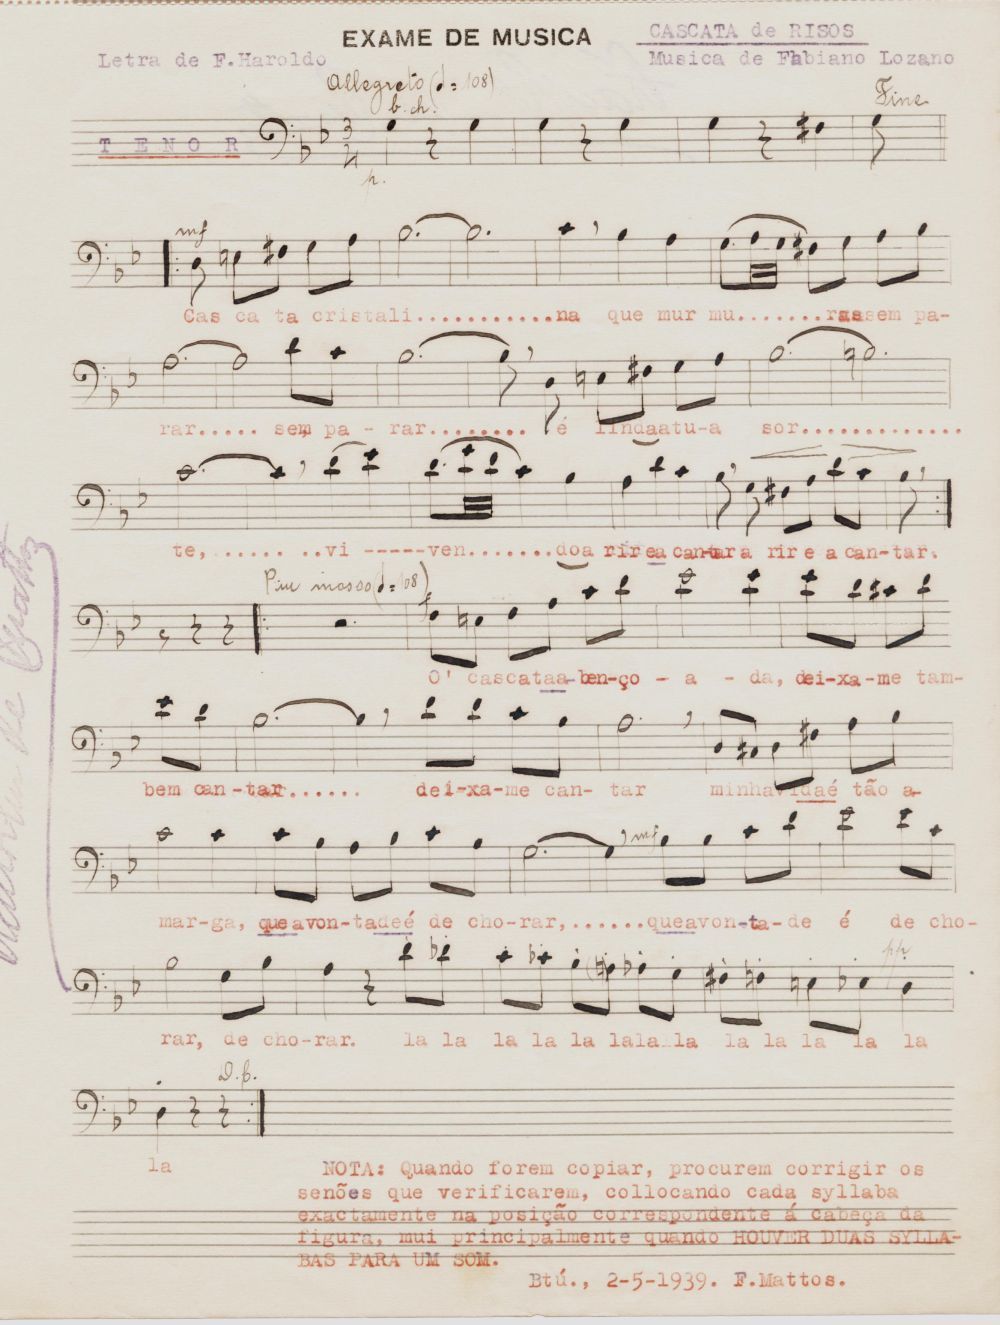 EXAME DE MUSICA
CASCATA de RISOS
Letra de F.Haroldo
Musica de Fabiano Lozano
Allegreto (♩ = 108)
b. ch.
Fine
TENOR
p.
mf
Cas ca ta cristali............na que mur mu.......rassem pa-
rar..... sem pa - rar........ é lindaatu-a sor.............
te, ...... ..vi -----ven.......doa rirea cantara rir e a can-tar.
Piu mosso (♩ = 108)
f
O' cascataa-ben-ço - a - da, dei-xa-me tam-
bem can-tar...... dei-xa-me can- tar minhavidaé tão a-
mf
mar-ga, queavon-tadeé de cho-rar,......queavon-ta-de é de cho-
pp.
rar, de cho-rar. la la la la la lalala la la la la la
la
NOTA: Quando forem copiar, procurem corrigir os
senões que verificarem, collocando cada syllaba
exactamente na posição correspondente á cabeça da
figura, mui principalmente quando HOUVER DUAS SYLLA-
BAS PARA UM SOM.
Btú., 2-5-1939. F.Mattos.